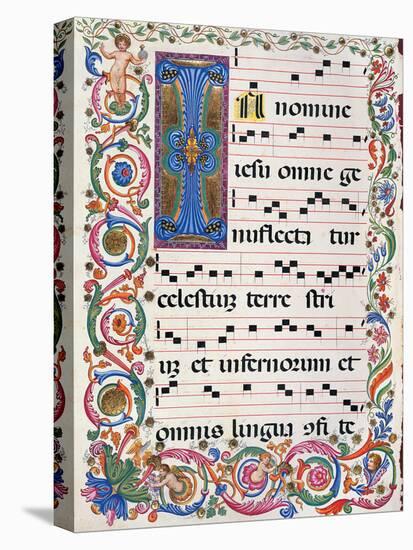 IN nomine
iesu omne ge
nuflecta tur
celestiuꝫ terre stri
uꝫ et infernorum et
omnis lingua ꝯfi te